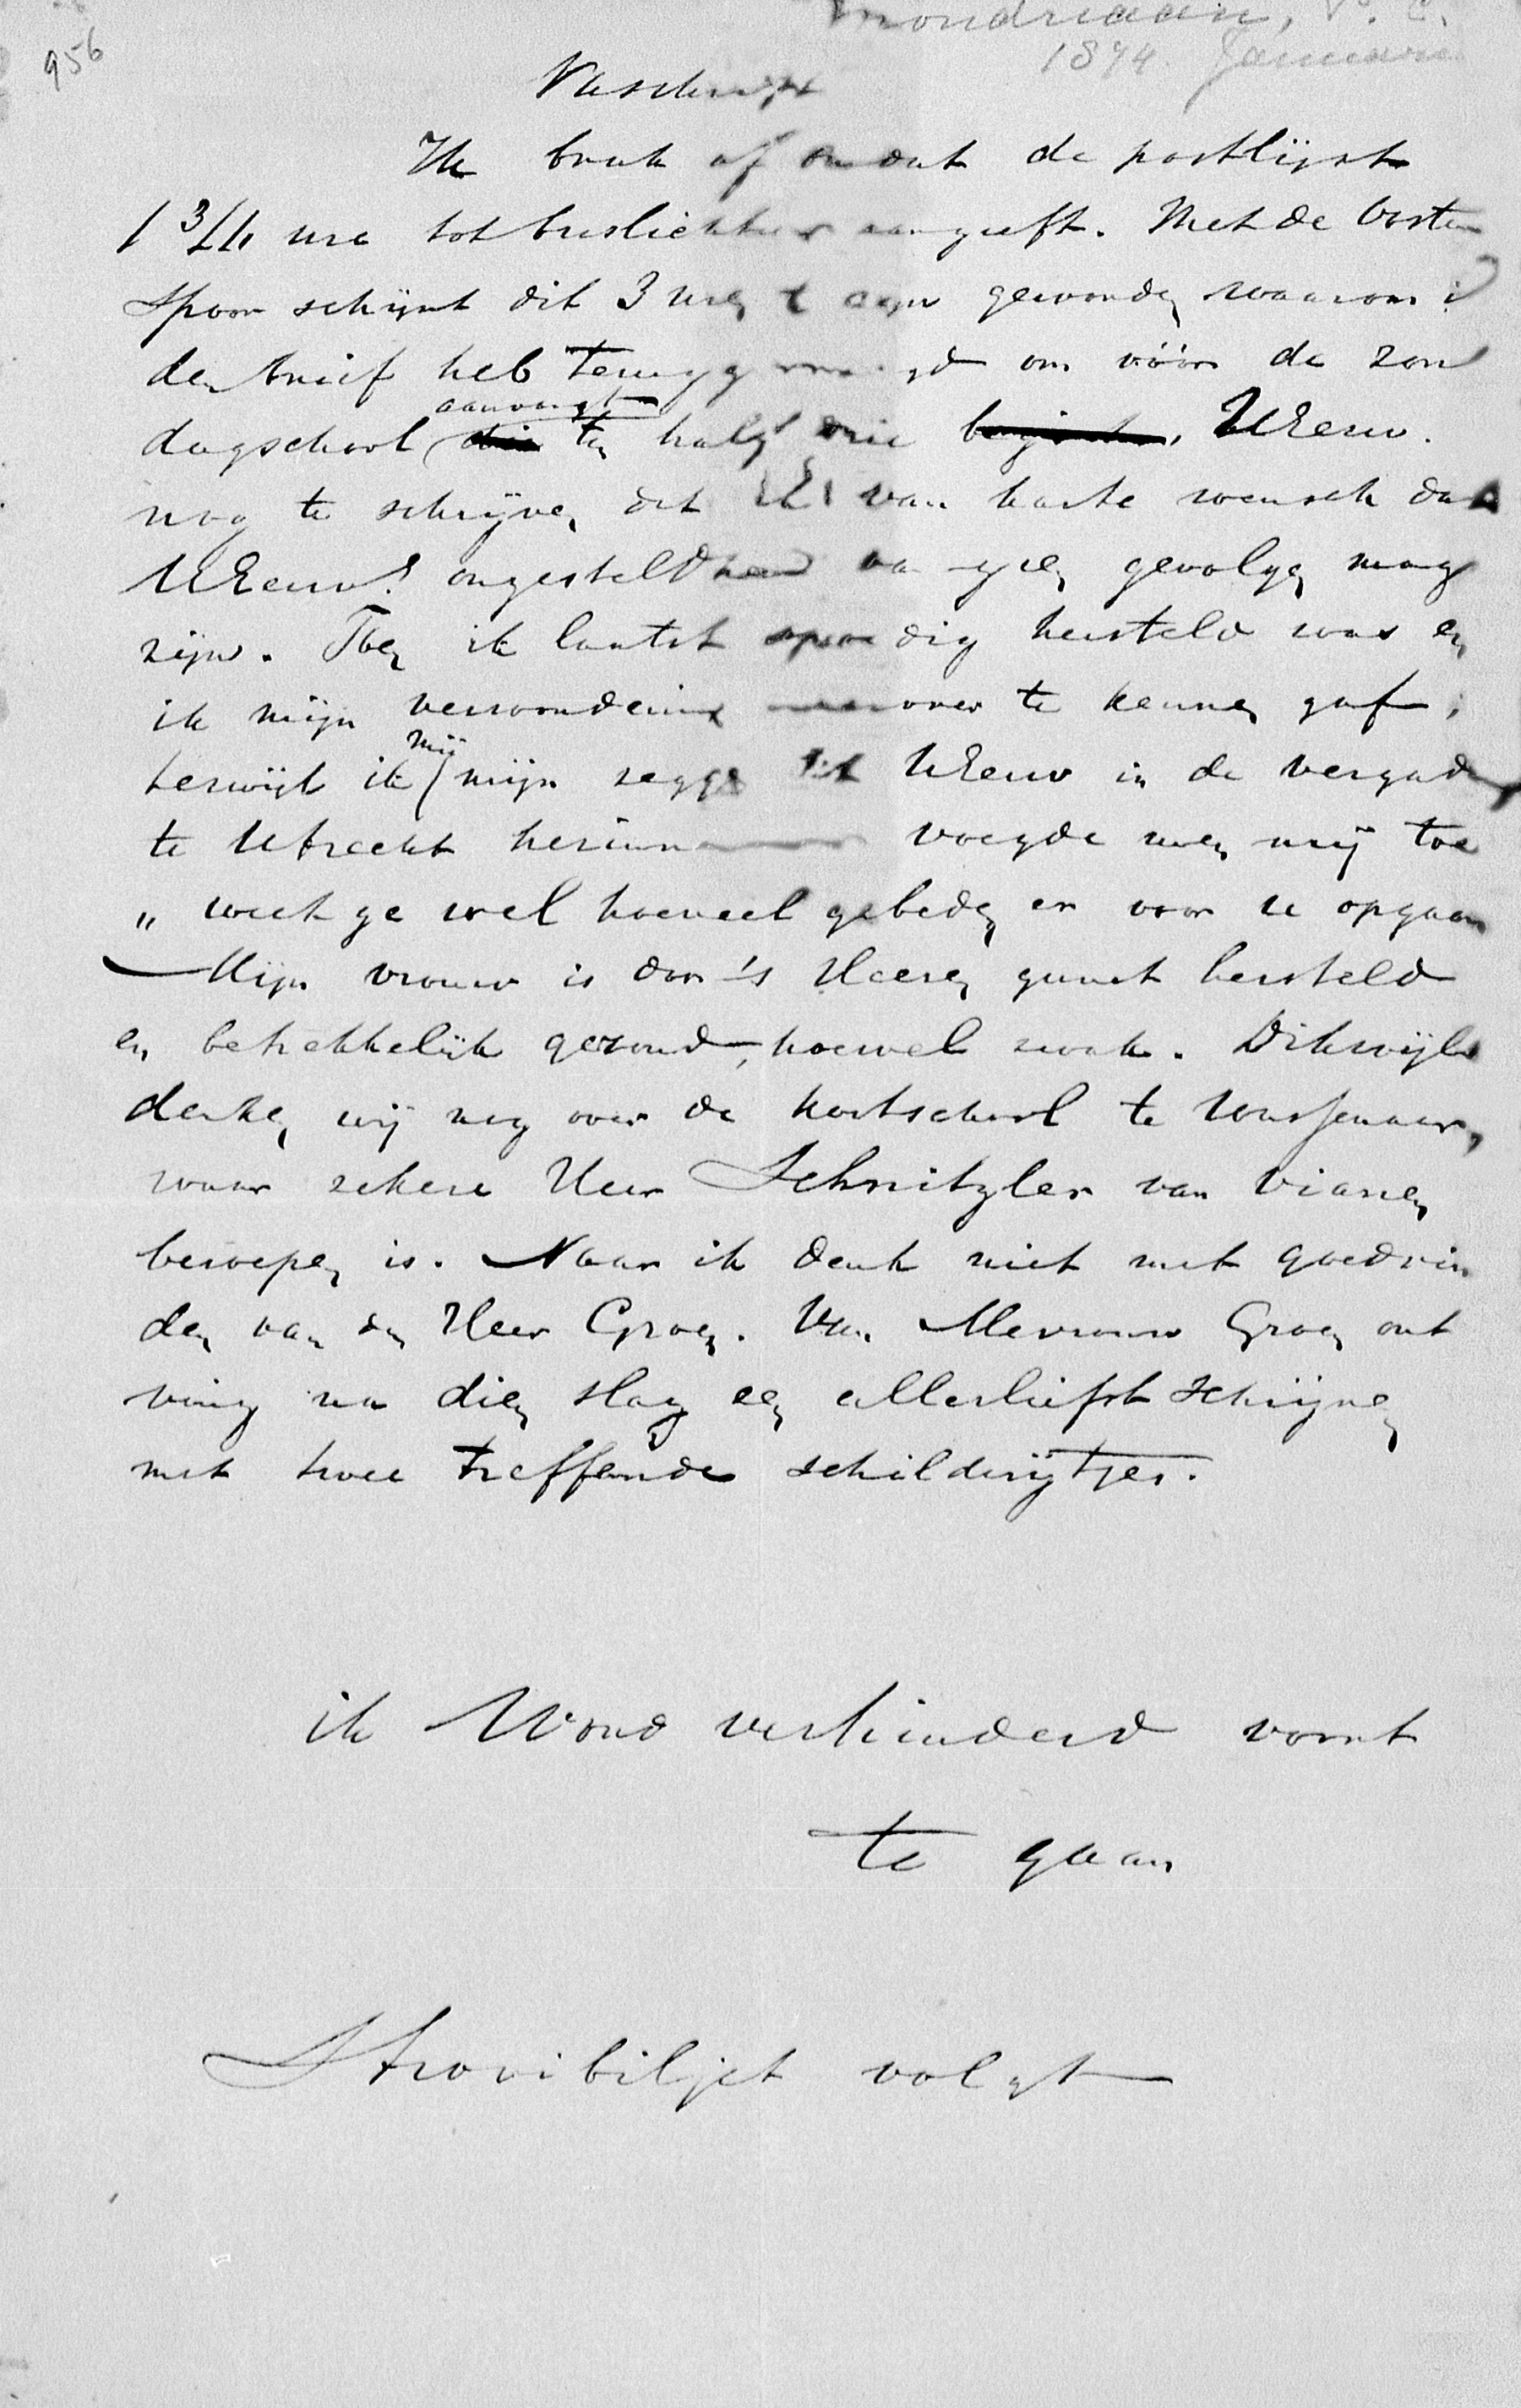 956
Mondriaan, P. C.
1874. Januari
Naschrift
Ik brak af omdat de postlijst
1 3/4 ure tot buslichten aangeeft. Met de Ooster
spoor schijnt dit 3 uren te zijn geworden waarom i
den brief heb teruggevraagd om vóór de zon
dagschool (die aanvangt ten half drie beginnen, UEerw.
nog te schrijven dat ik van harte wensch dat
UEerws ongesteldheid van geen gevolgen mag
zijn. Toen ik laatst spoedig hersteld was en
ik mijn verwondering daarover te kennen gaf,
terwijl ik mij mijn zeggen tot UEerw in de vergadering
te Utrecht herinnerde voegde men mij toe
„ weet ge wel hoeveel gebeden er voor u opgaan
— Mijn vrouw is door 's Heeren gunst hersteld
en betrekkelijk gezond, hoewel zwak. Dikwijls
denken wij nog over de kostschool te Wassenaar,
waar zekere Heer Schnitzler van Vianen
beroepen is. Naar ik denk niet met goedvin
den van den Heer Groen. Van Mevrouw Groen ont
ving na dien slag een allerliefst schrijven
met twee treffende schilderijtjes.
ik Word verhinderd voort
te gaan
Strooibiljet volgt